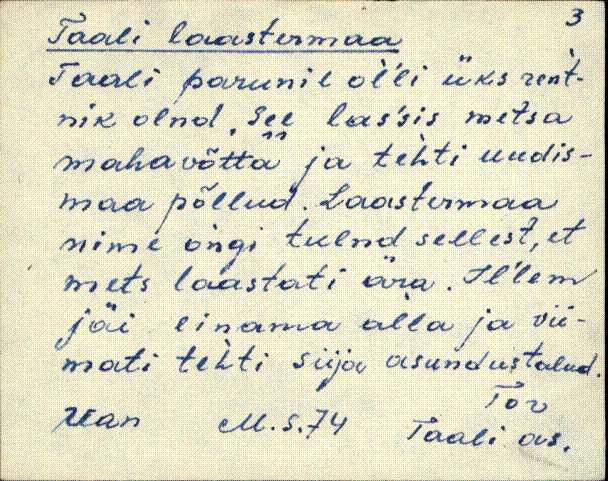 3
Taali laastermaa
Taali parunil ol̀li üks rent̀-
nik olnd. See las̀sis metsa
mahavõtta ja teh̀ti uudis-
maa põllud. Laastermaa
nime ongi tulnd sellest, et
mets laastati ära. Il̀lem
jäi einama alla ja vii-
mati teh̀ti siija asundustalud.
Tov
M. S. 74
Taali as.